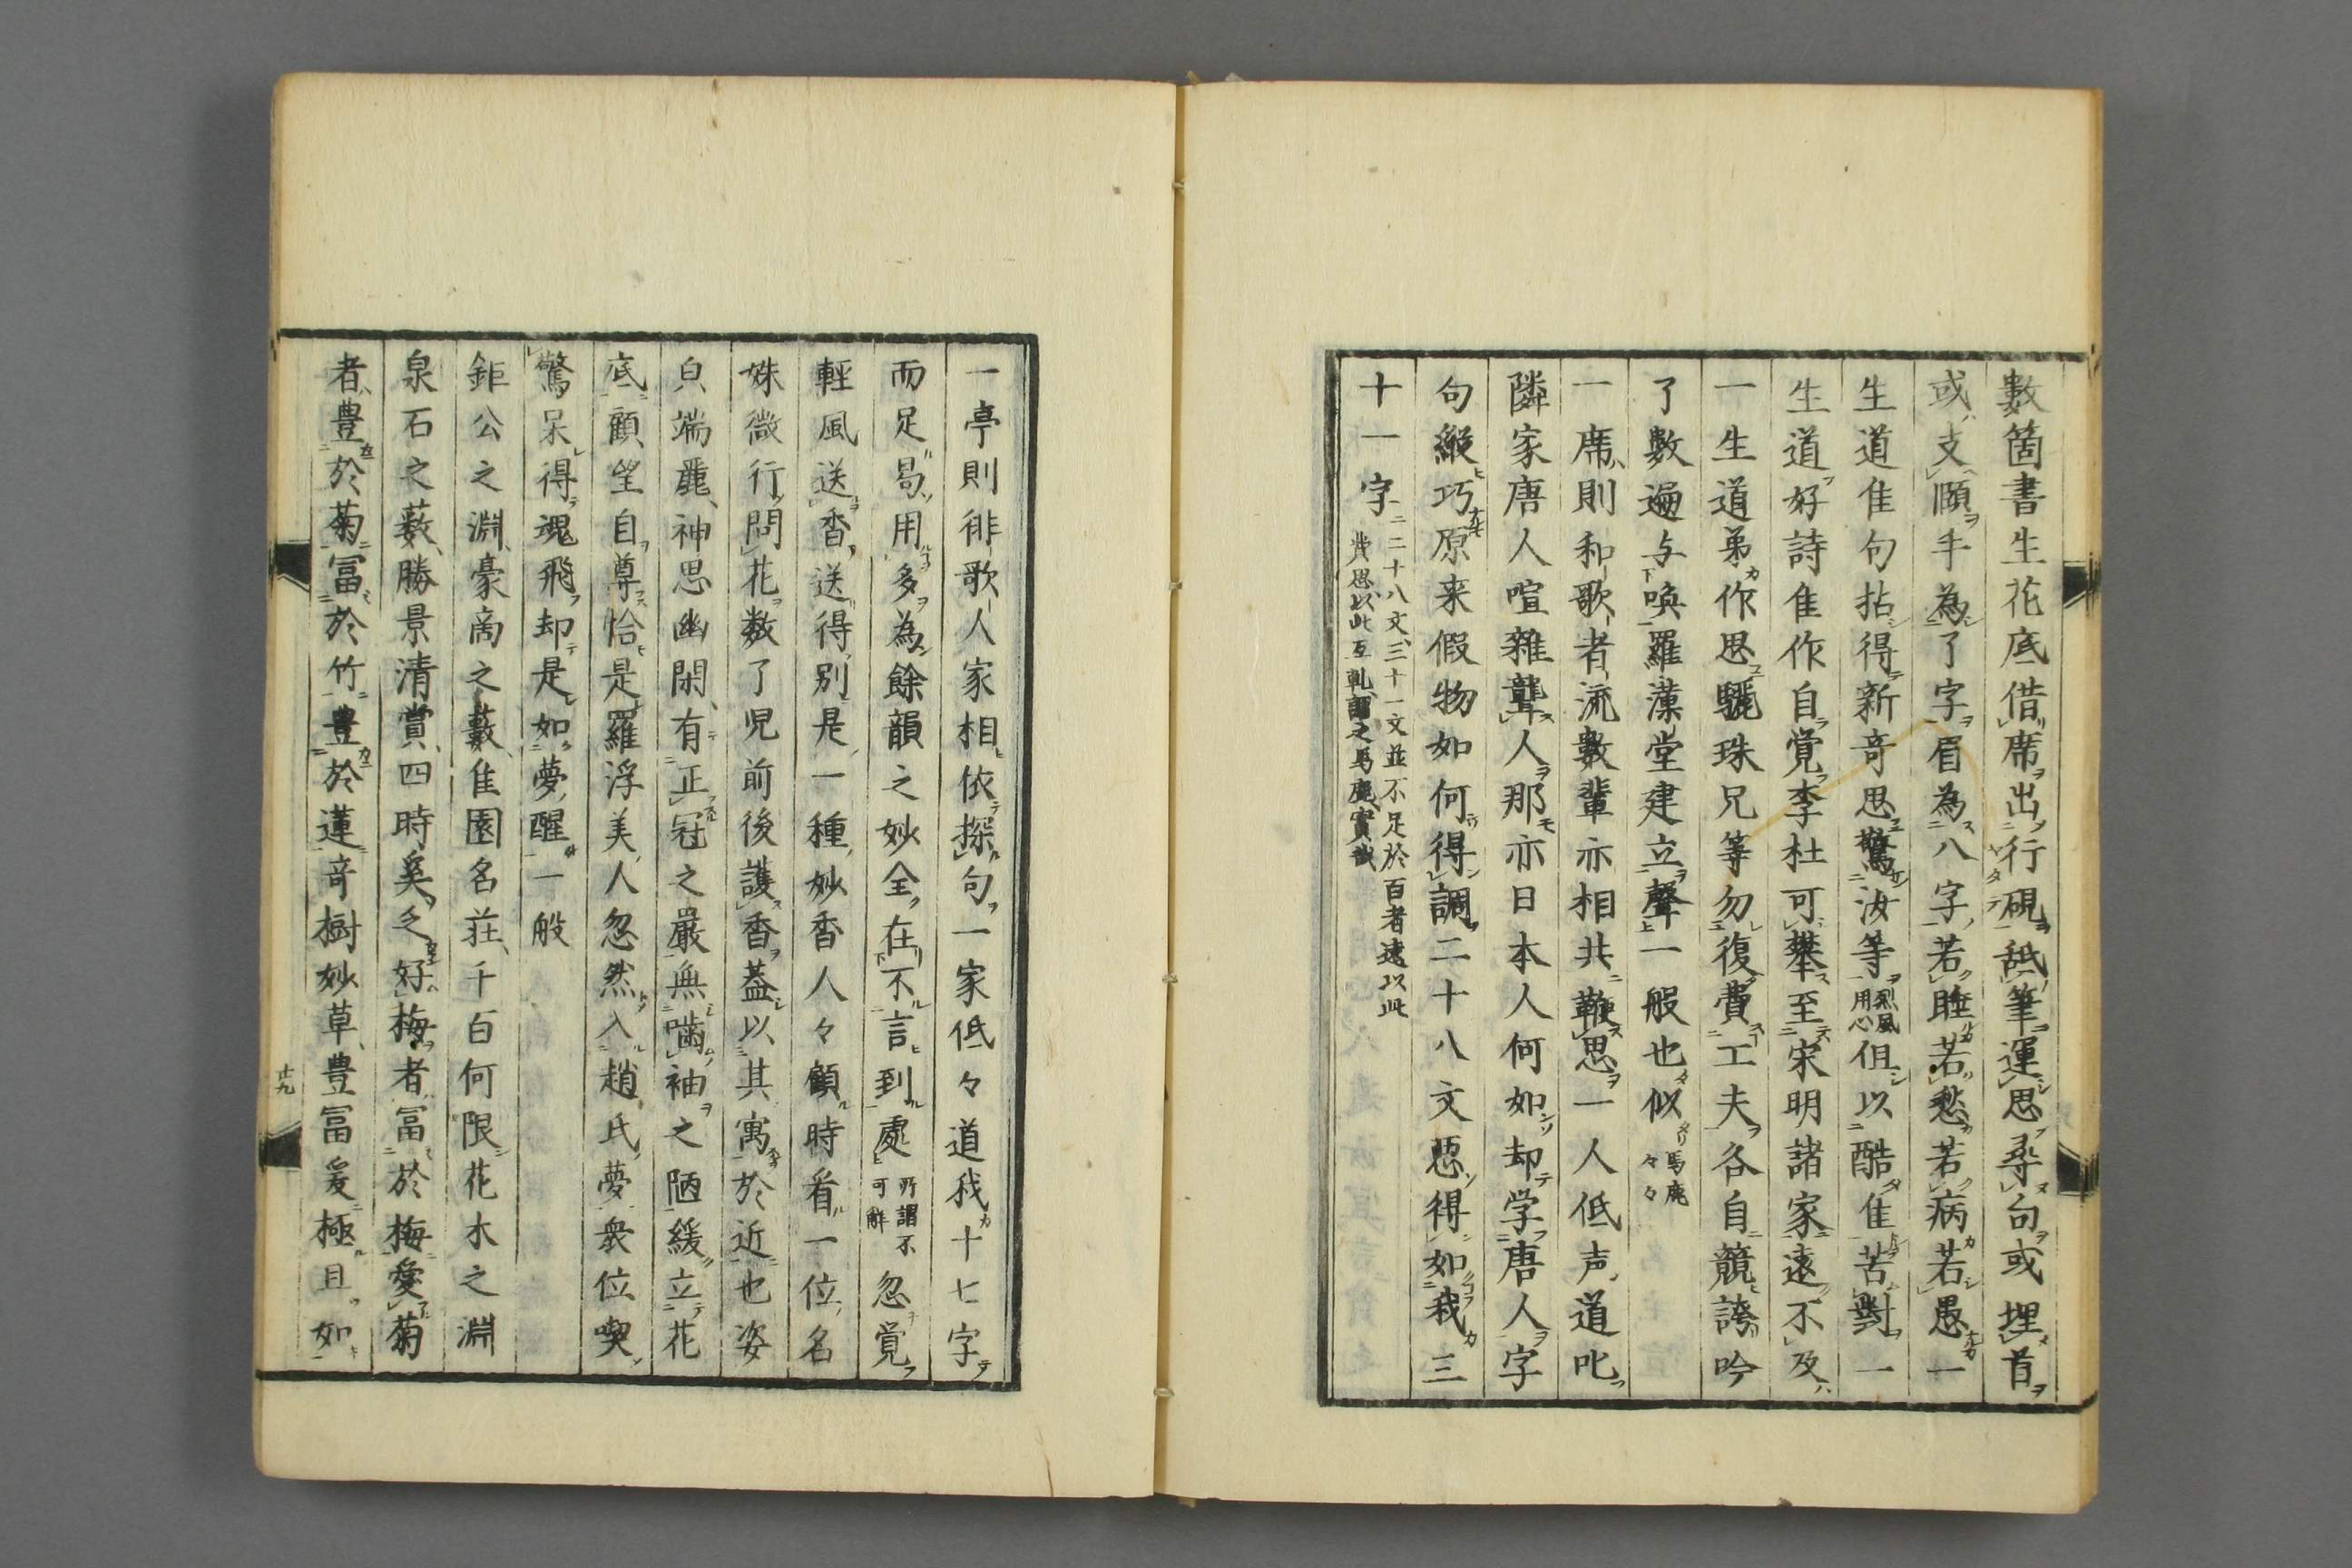 數箇書生花底借席出行硯舐筆運思尋句或埋首
或支頤手為了字眉為八字若睡若愁若病若愚一
生道佳句拈得新奇思驚汝等烈風用心但以酷佳苦對一
生道好詩佳作自覚李杜可攀至宋明諸家遠不及
一生道弟作思驪珠兄等勿復費工夫各自競誇吟
了數遍与喚羅漢堂建立聲一般也似馬鹿々々
一席則和歌者流數輩亦相共鞭思一人低声道叱
隣家唐人喧雜聾人那亦日本人何如却学唐人字
句縱巧原来假物如何得調二十八文惡得如我三
十一字二十八文三十一文並不足於百者遠以此
費思以此互軋謂之馬鹿實哉
一亭則徘歌人家相依探句一家低々道我十七字
而足曷用多為餘韻之妙全在不言到處所謂不可解忽覚
輕風送香送得別是一種妙香人々顧時看一位名
姝微行問花数了児前後護香葢以其寓於近也姿
皃端麗神思幽閑有正冠之嚴無嚙袖之陋緩立花
底顧望自尊恰是羅浮美人忽然入趙氏夢衆位喫
驚呆得魂飛却是如夢醒一般
鉅公之淵豪啇之藪佳園名荘千百何限花木之淵
泉石之藪勝景清賞四時奚乏好梅者冨於梅愛菊
者豊於菊冨於竹豊於蓮奇樹妙草豊冨爰極且如
十九